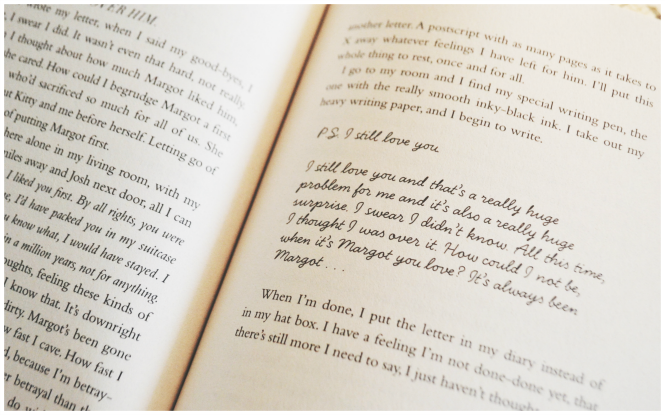 OVER HIM.
wrote my letter, when I said my good-byes, I
, I swear I did. It wasn't even that hard, not really,
I thought about how much Margot liked him,
she cared. How could I begrudge Margot a first
who'd sacrificed so much for all of us. She
ut Kitty and me before herself. Letting go of
of putting Margot first.
here alone in my living room, with my
miles away and Josh next door, all I can
I liked you first. By all rights, you were
e, I'd have packed you in my suitcase
u know what, I would have stayed. I
in a million years, not for anything.
oughts, feeling these kinds of
I know that. It's downright
dirty. Margot's been gone
w fast I cave. How fast I
d, because I'm betray-
er betrayal than th
do wi
another letter. A postscript with as many pages as it takes to
X away whatever feelings I have left for him. I'll put this
whole thing to rest, once and for all.
I go to my room and I find my special writing pen, the
one with the really smooth inky-black ink. I take out my
heavy writing paper, and I begin to write.
P.S. I still love you
I still love you and that's a really huge
problem for me and it's also a really huge
surprise. I swear I didn't know. All this time,
I thought I was over it. How could I not be,
when it's Margot you love? It's always been
Margot . . .
When I'm done, I put the letter in my diary instead of
in my hat box. I have a feeling I'm not done-done yet, that
there's still more I need to say, I just haven't though